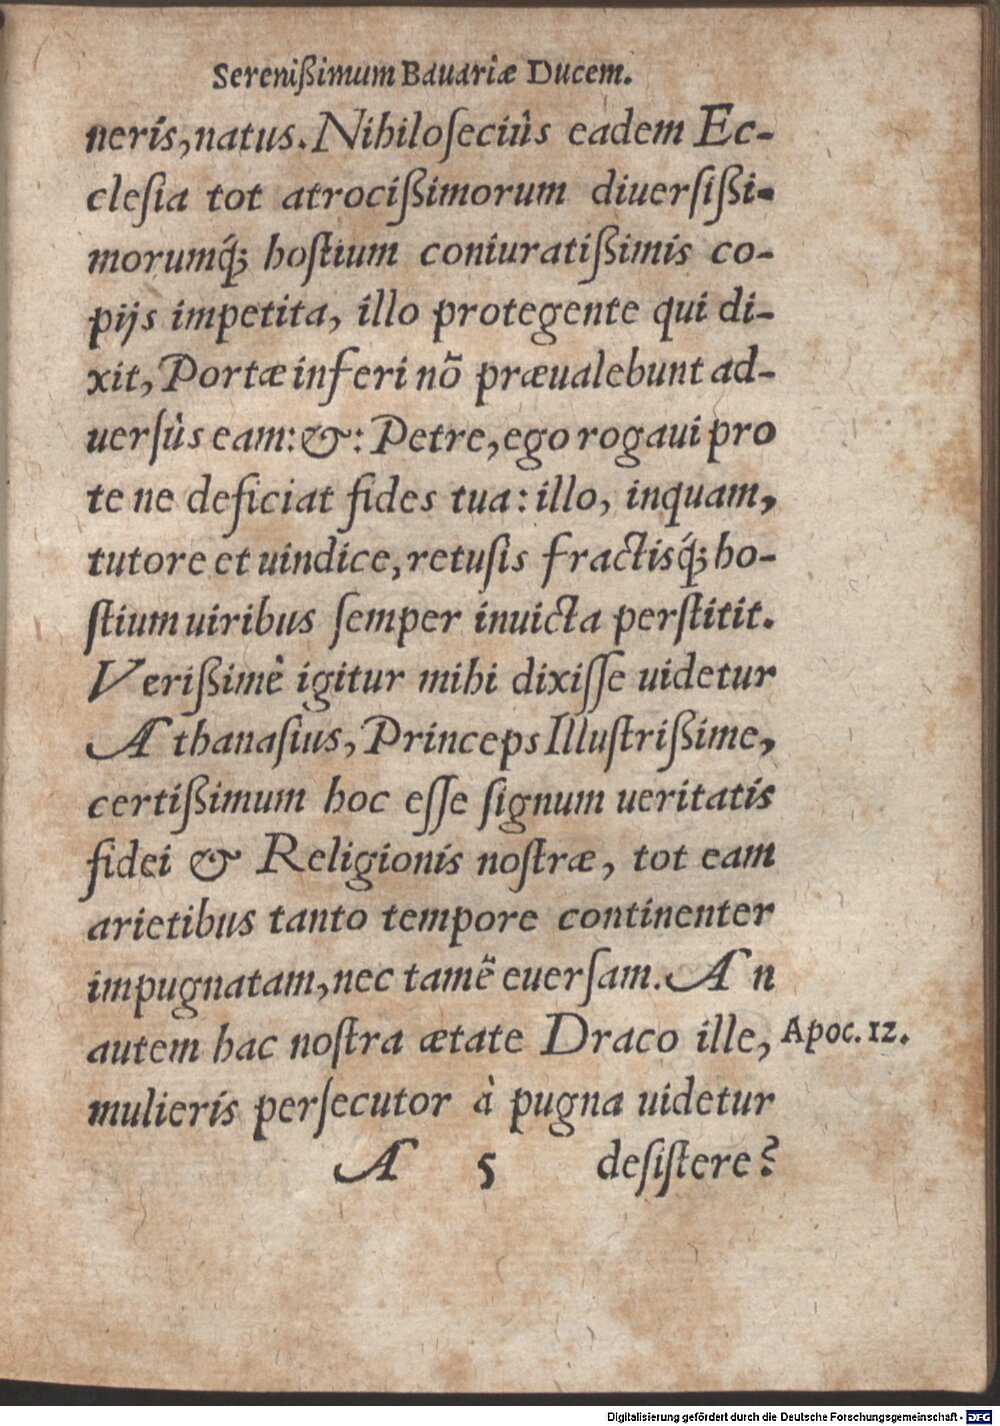 Sereniſsimum Bauariæ Ducem.
neris, natus. Nihiloſeciùs eadem Ec-
cleſia tot atrociſsimorum diuerſiſsi-
morumq́; hoſtium coniuratiſsimis co-
pijs impetita, illo protegente qui di-
xit, Portæ inferi nõ præualebunt ad-
uerſùs eam: &: Petre, ego rogaui pro
te ne deficiat fides tua: illo, inquam,
tutore et uindice, retuſis fractisq́; ho-
ſtium uiribus ſemper inuicta perſtitit.
Veriſsimè igitur mihi dixiſſe uidetur
Athanaſius, Princeps Illuſtriſsime,
certiſsimum hoc eſſe ſignum ueritatis
fidei & Religionis noſtræ, tot eam
arietibus tanto tempore continenter
impugnatam, nec tamẽ euerſam. An
autem hac noſtra ætate Draco ille, Apoc. 12.
mulieris perſecutor à pugna uidetur
A 5 deſiſtere?
Digitalisierung gefördert durch die Deutsche Forschungsgemeinschaft - DFG